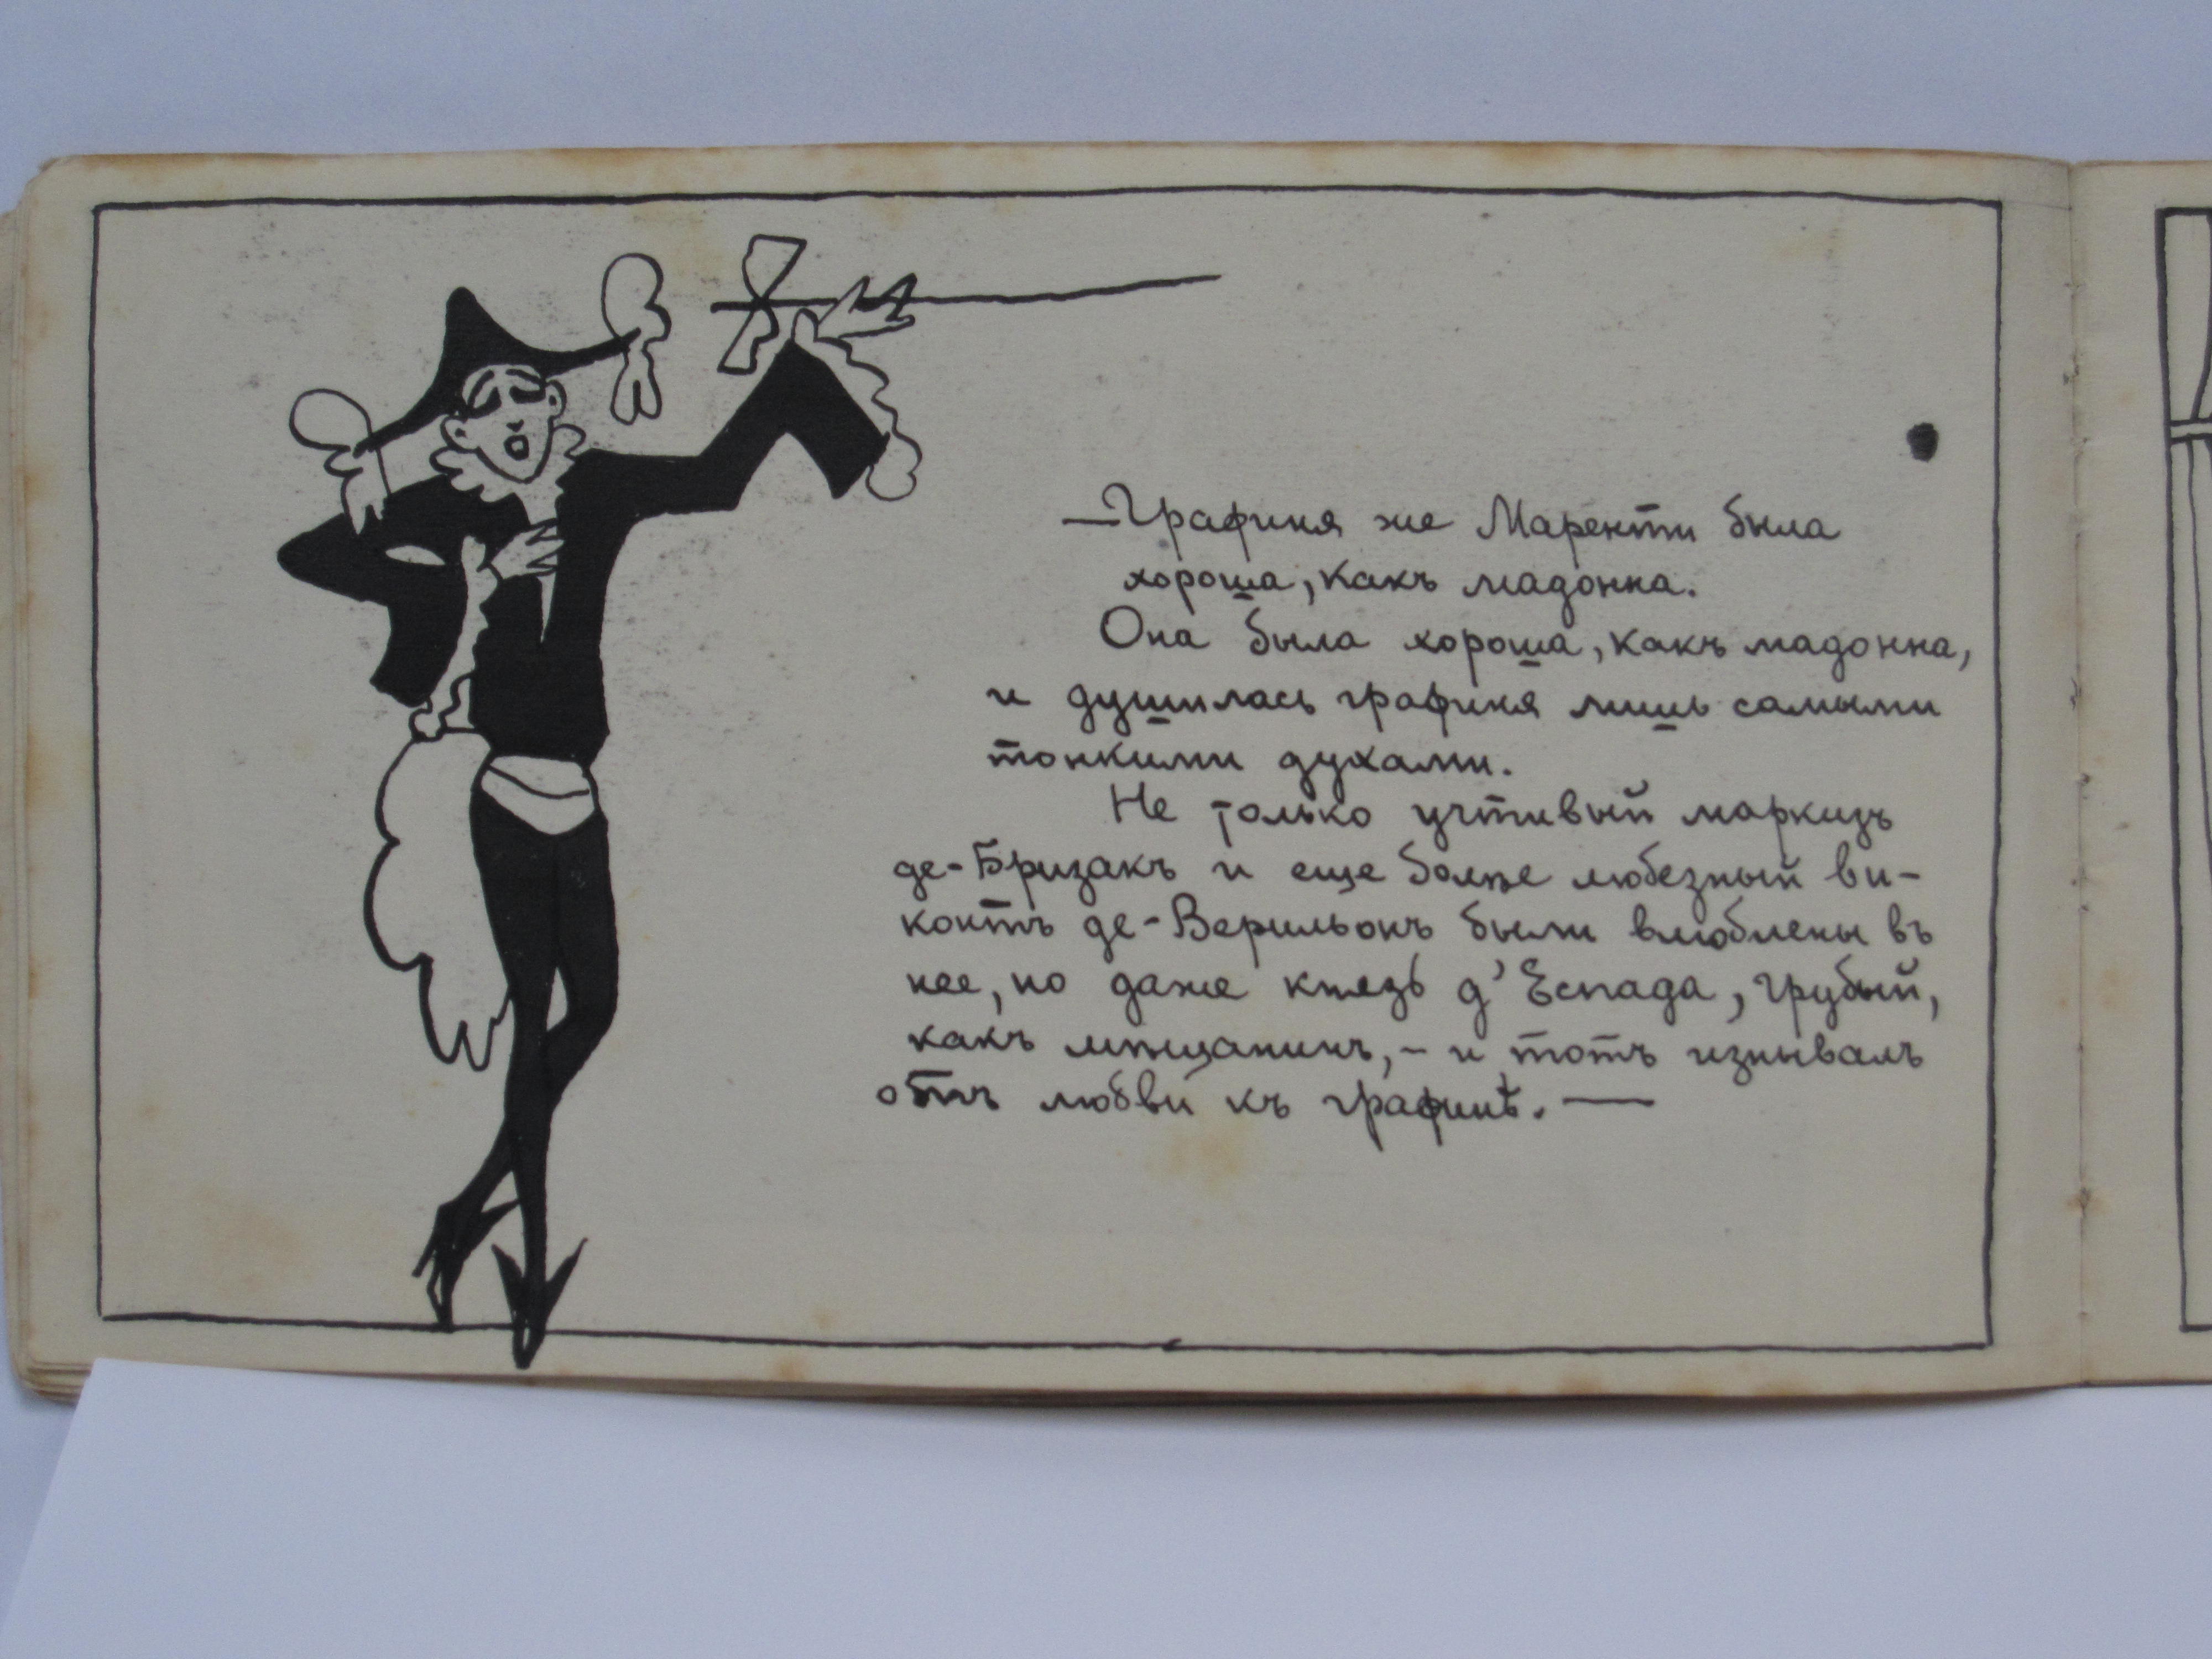 —Графиня же Маренти была
хороша, какъ мадонна.
Она была хороша, какъ мадонна,
и душилась графиня лишь самыми
тонкими духами.
Не только учтивый маркизъ
де-Бризакъ и еще болѣе любезный ви-
контъ де-Верильонъ были влюблены въ
нее, но даже князь д'Еспада, грубый,
какъ мѣщанинъ, - и тотъ изнывалъ
отъ любви къ графинѣ. —